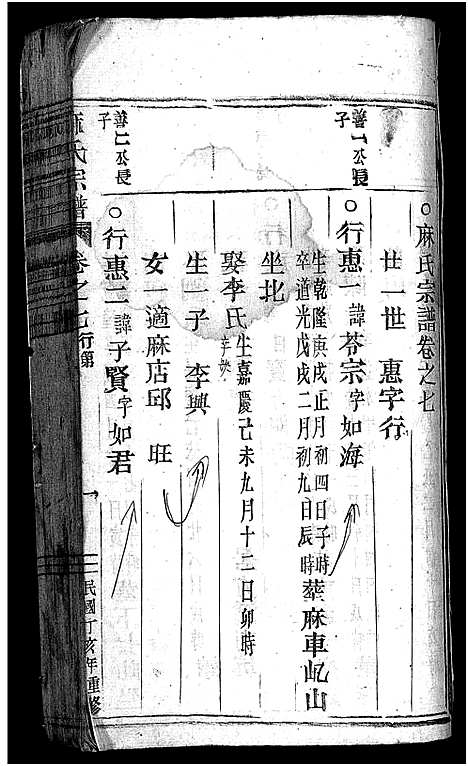 ○麻氏宗譜卷之七
廿一世 惠字行
善一公長子
○行惠一諱苓宗字如海
生乾隆庚戌正月初四日子時
卒道光戊戌二月初九日辰時
塟麻車屺山
坐北
娶李氏生嘉慶己未九月十二日卯時
卒缺
生一子 李興
女一適麻店邱 旺
善二公長子
○行惠二諱子賢字如君
麻氏宗譜
卷之七
行第
一
民國丁亥年重修